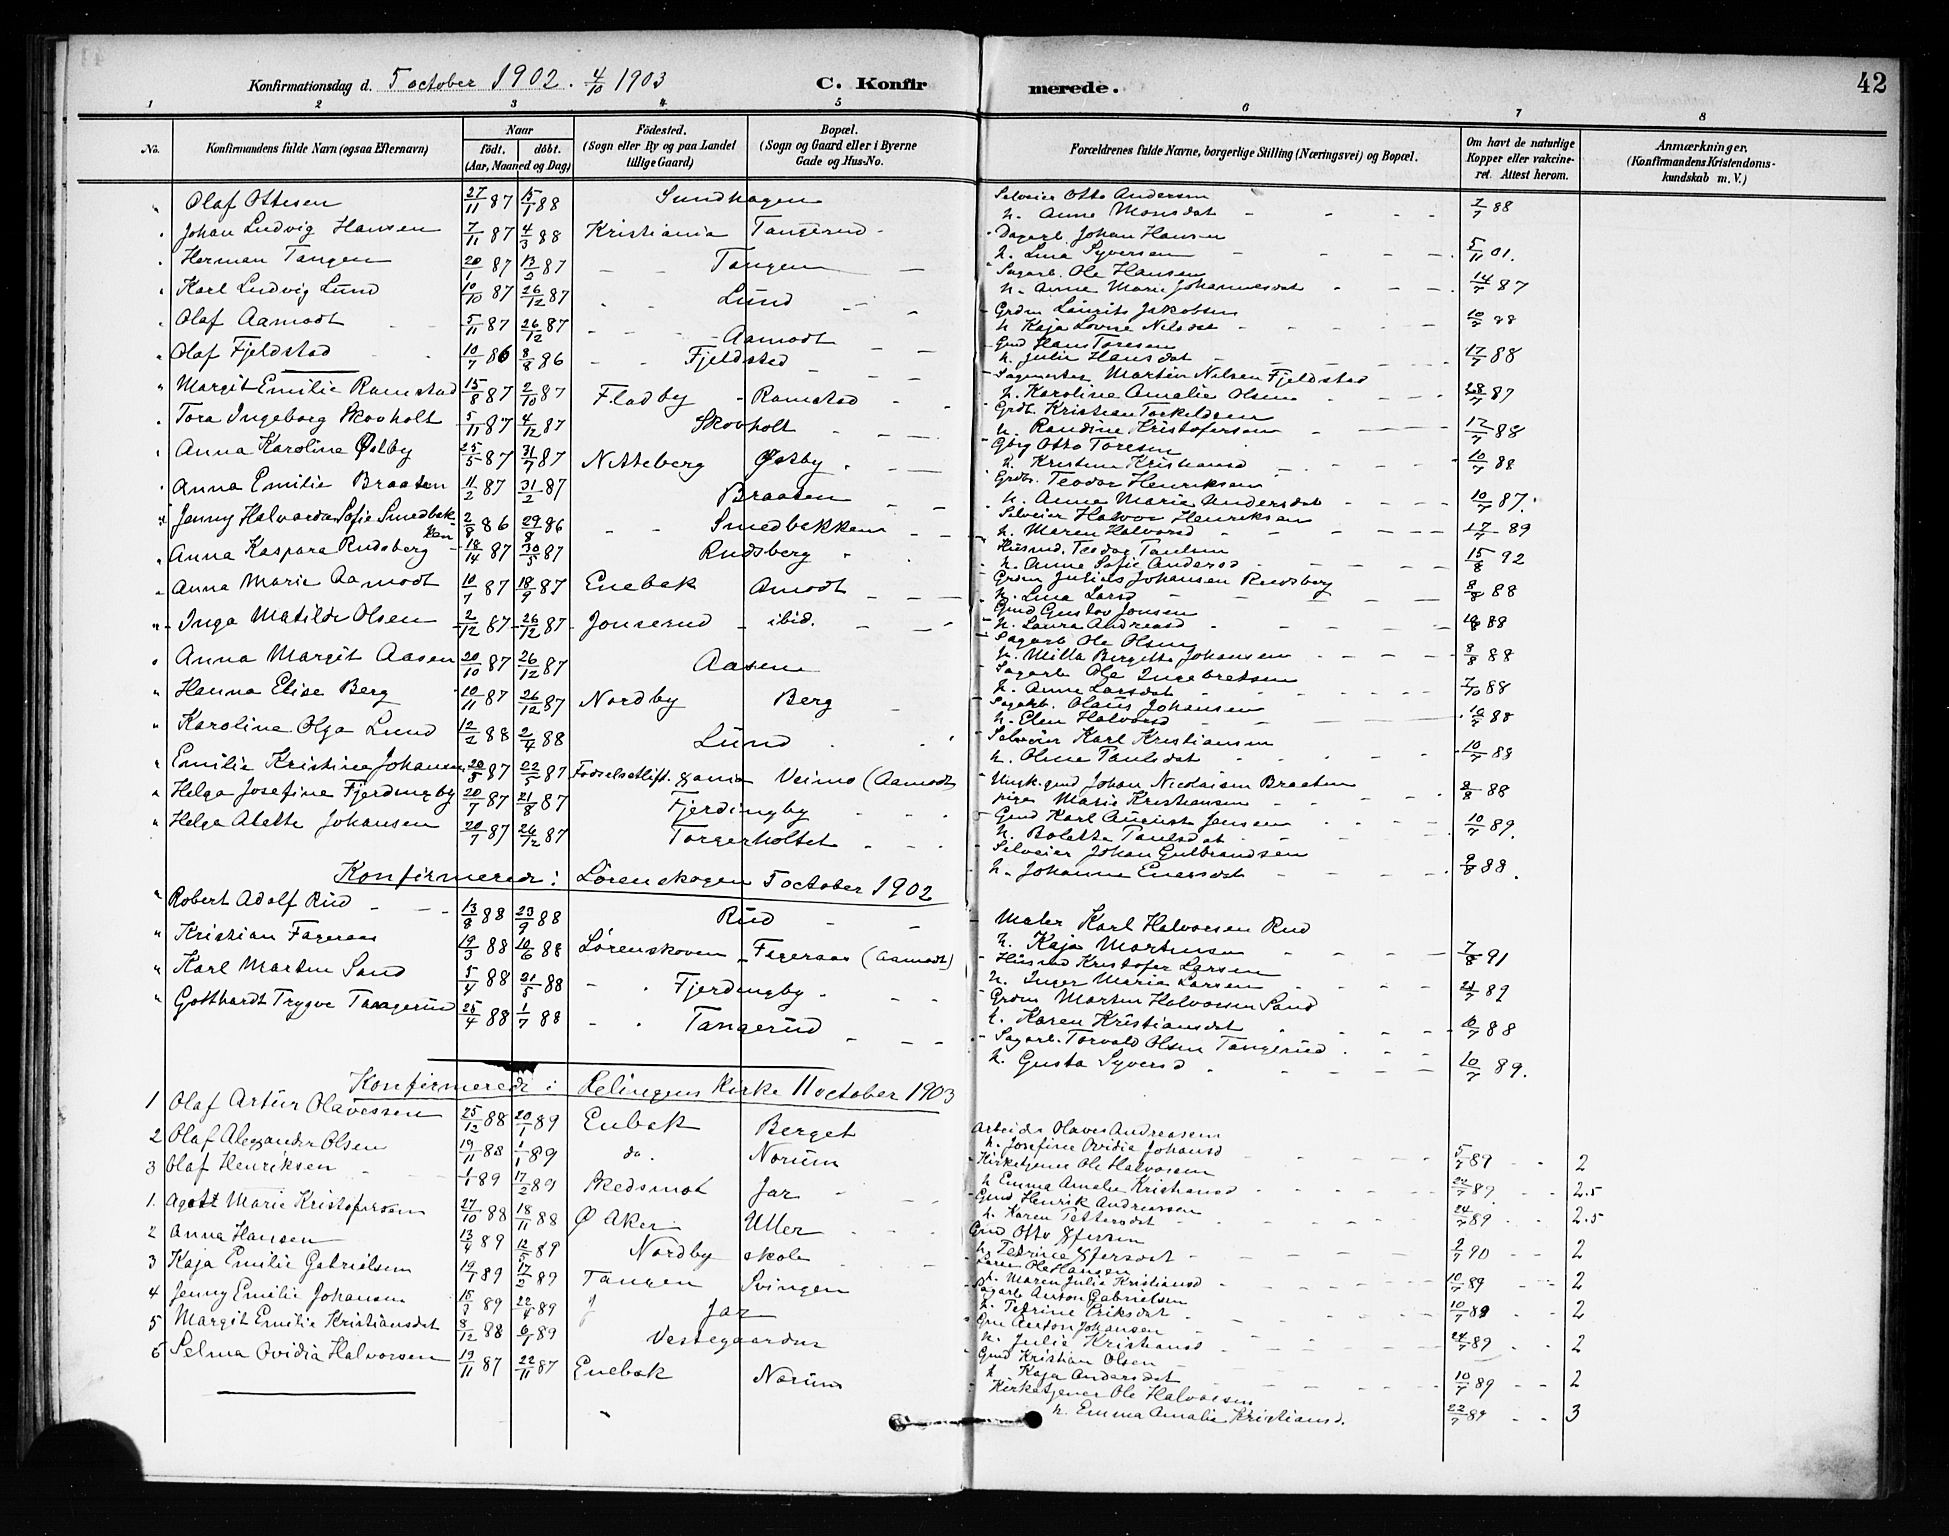 Konfirmationsdag d. 5 october 1902. 4/10 1903 C. Konfirmerede. 42
1 2 3 4 5 6 7 8
No. Konfirmandens fulde Navn (ogsaa Efternavn) Naar født. døbt. (Aar, Maaned og Dag) Fødested. (Sogn eller By og paa Landet tillige Gaard) Bopæl. (Sogn og Gaard eller i Byerne Gade og Hus-No. Forældrenes fulde Navne, borgerlige Stilling (Næringsvei) og Bopæl. Om havt de naturlige Kopper eller vakcineret. Attest herom. Anmærkninger, (Konfirmandens Kristendomskundskab m. V.)
" Olaf Ottesen 27/11 87 15/1 88 Sundhagen Selveier Otto Andersen
h. Anne Monsdat 7/7 88
" Johan Ludvig Hansen 7/11 87 4/3 88 Kristiania Tangerud Dagarb. Johan Hansen
h. Lina Syversen 5/11 01.
" Herman Tangen 20/1 87 13/2 87 Tangen Sagarb. Ole Hansen
h. Anne Marie Johannesdat 14/7 87
" Karl Ludvig Lund 10/10 87 26/12 87 Lund Grdm Laurits Jakobsen
h Kaja Lovise Nilsdat 10/7 88
" Olaf Aamodt 5/11 87 26/12 87 Aamodt Gmd Hans Toresen
h. Julie Hansdat 17/7 88
" Olaf Fjeldstad 10/7 86 8/8 86 Fjeldstad Sagmester Martin Nilsen Fjeldstad
h. Karoline Amalie Olsen 28/7 87
" Margit Emilie Ramstad 15/8 87 2/10 87 Fladby Ramstad Grdb. Kristian Torkildsen
h. Randine Kristofersen 17/7 88
" Tora Ingeborg Skovholt 5/11 87 4/12 87 Skovholt Gbrg Otto Toresen
h. Kristine Kristiansd 10/7 88
" Anna Karoline Østby 25/5 87 31/7 87 Nitteberg Østby Grdbr. Teodor Henriksen
h. Anne Marie Andersdat 10/7 87.
" Anna Emilie Braaten 11/2 87 31/2 87 Braaten Selveier Halvor Henriksen
h. Maren Halvorsd 17/7 89
" Jenny Halvarda Sofie Smedbakken 2/8 86 29/8 86 Smedbakken Husmd. Teodor Paulsen
h. Anne Sofie Andersd 15/8 92
" Anna Kaspara Rudsberg 18/14 87 30/5 87 Rudsberg Grdm Julius Johansen Rudsberg
h. Lina Larsd 8/8 88
" Anna Marie Aamodt 10/7 87 18/9 87 Enebak Amodt Gmd Gustav Jonsen
h. Laura Andreasd 10/8 88
" Inga Matilde Olsen 2/12 87 26/12 87 Jonserud ibid. Sagarb Ole Olsen
h. Milla Bergitte Johansen 8/8 88
" Anna Margit Aasen 20/10 87 26/12 87 Aasen Sagarb Ole Ingebretsen
h. Anne Larsdat 7/10 88
" Hanna Elise Berg 10/11 87 26/12 87 Nordby Berg Sagarb. Olaus Johansen
h. Elen Halvorsd 10/7 88
" Karoline Olga Lund 12/2 88 2/4 88 Lund Selveier Karl Kristiansen
h. Oline Paulsdat 10/7 88
" Emilie Kristine Johansen 20/5 87 22/5 87 Fødselsstift. Kania Veimo (Aamodt Ungk. gmd Johan Nicolaisen Braaten
pige Marie Kristiansen 8/8 88
" Helga Josefine Fjerdingby 20/7 87 21/8 87 Fjerdingby Gmd Karl August Jensen
h. Bolette Paulsdat 10/7 89.
" Helga Alette Johansen 20/7 87 26/12 87 Torgerholtet Selveier Johan Gulbrandsen
h. Johanne Enersdat 9/8 88.
Konfirmerede i Lørenskogen 5 october 1902
" Robert Adolf Rud 13/8 88 23/9 88 Rud Maler Karl Halvorsen Rud
h. Kaja Martinsen 7/8 91
" Kristian Fageraas 19/3 88 10/6 88 Lørenskoven Fageraas (Aamodt) Husmd Kristofer Larsen
h. Inger Marie Larsen 21/7 89
" Karl Martin Sand 5/4 88 21/5 88 Fjerdingby Grdm Martin Halvorsen Sand
h. Karen Kristiansdat 10/7 88
" Gotthardt Trygve Tangerud 25/4 88 1/7 88 Tangerud Sagarb. Torvald Olsen Tangerud
h. Gusta Syversd 10/7 89.
Konfirmerede i Rælingens Kirke 11 october 1903
1 Olaf Artur Olavessen 25/12 88 20/1 89 Enebak Berget Arbeider Olaves Andreasen
h. Josefine Ovidia Johansd 5/7 89 2
2 Olaf Alexander Olsen 19/11 88 1/1 89 do. Norum Kirketjener Ole Halvorsen
h Emma Amalie Kristiansd 22/7 89 2.5
3 Olaf Henriksen 1/1 89 17/2 89 Skedsmot Jar Gmd Henrik Andreassen
h. Karen Pettersdat 24/7 89 2.5
1. Agott Marie Kristofersen 27/10 88 18/11 88 Ø Aker Uller Gmd Otto
h. Petrine 2/7 90 2
2 Anna Hansen 13/4 89 12/5 89 Nordby skole Lærer Ole Hansen
h. Maren Julie Kristiansd 10/7 89 2
3 Kaja Emilie Gabrielsen 19/1 89 17/2 89 Tangen Svingen Sagarb Anton Gabrielsen
h. Petrine Eriksdat 10/7 89 2
4 Jenny Emilie Johansen 15/3 89 22/4 89 Jar Gm Anton Johansen
h. Julie Kristiansd 24/7 89 2
5 Margit Emilie Kristiansdat 8/12 88 6/1 89 Vestegaarden Gmd Kristian Olsen
h. Kaja Andersdat 10/7 89 2
6 Selma Ovidia Halvorsen 19/11 87 22/11 87 Enebak Norum Kirketjener Ole Halvorsen
h. Emma Amalie Kristiansd. 22/7 89 3